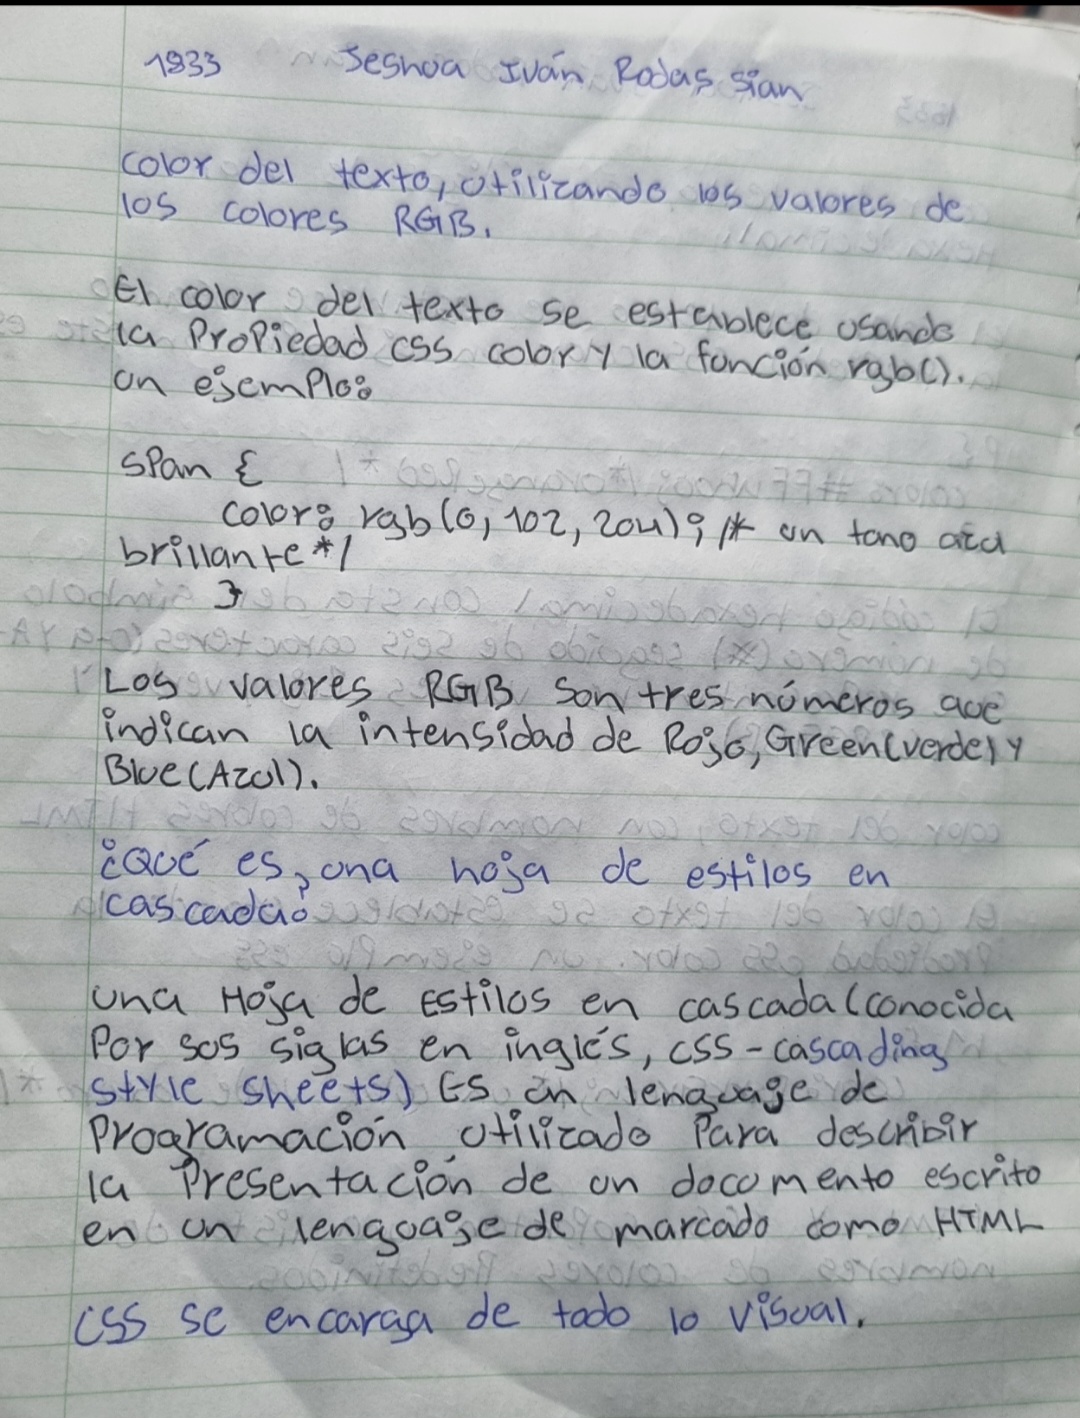 1833 Jeshua Iván Rodas Sian
color del texto, utilizando los valores de
los colores RGB.
El color del texto se establece usando
la Propiedad css color y la función rgb().
un ejemplo:
span {
color: rgb(0, 102, 204); /* un tono azul
brillante */
}
Los valores RGB son tres números que
indican la intensidad de Rojo, Green(verde) y
Blue(Azul).
¿Qué es, una hoja de estilos en
cascada?
una Hoja de Estilos en cascada (conocida
Por sus siglas en inglés, CSS - cascading
style sheets) Es un lenguaje de
Programación utilizado Para describir
la Presentación de un documento escrito
en un lenguaje de marcado como HTML
CSS se encarga de todo lo visual.